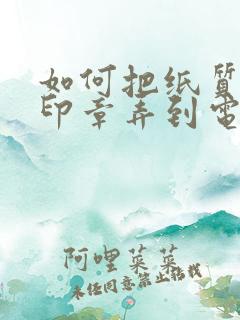 如何把纸质
印章弄到电
阿哩菜菜
未经同意禁止搭载